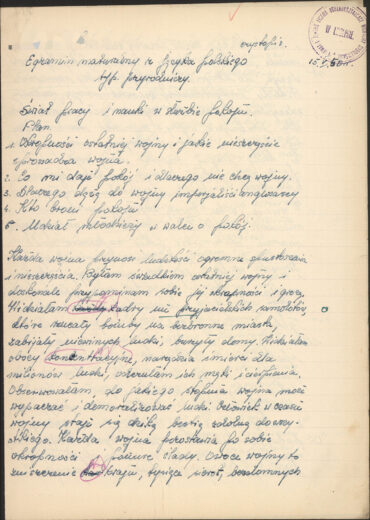 czystopis.
Egzamin maturalny z języka polskiego
typ. przyrodniczy.
15.V.50r.
Świat pracy i nauki w służbie pokoju.
Plan.
1. Okropności ostatniej wojny i jakie nieszczęście
sprowadza wojna.
2. Co mi daje pokój i dlaczego nie chcę wojny.
3. Dlaczego dążą do wojny imperialiści angloamery
4. Kto broni pokoju
5. Udział młodzieży w walce o pokój.
Każda wojna przynosi ludzkości ogromne spustoszenia
i nieszczęścia. Byłam świadkiem ostatniej wojny i
doskonale przypominam sobie jej okropności i grozę.
Widziałam eskadry nieprzyjacielskich samolotów,
które rzucały bomby na bezbronne miasta,
zabijały niewinnych ludzi, burzyły domy. Widziałam
obozy koncentracyjne, narzędzia śmierci dla
milionów ludzi, odczułam ich męki i cierpienia.
Obserwowałam, do jakiego stopnia wojna może
wypaczać i demoralizować ludzi. Człowiek w czasie
wojny staje się dziką bestią zdolną do wszy-
stkiego. Każda wojna pozostawia po sobie
okropności i ślady. Owoce wojny to
zniszczenie kraju, tysiące sierot, bezdomnych